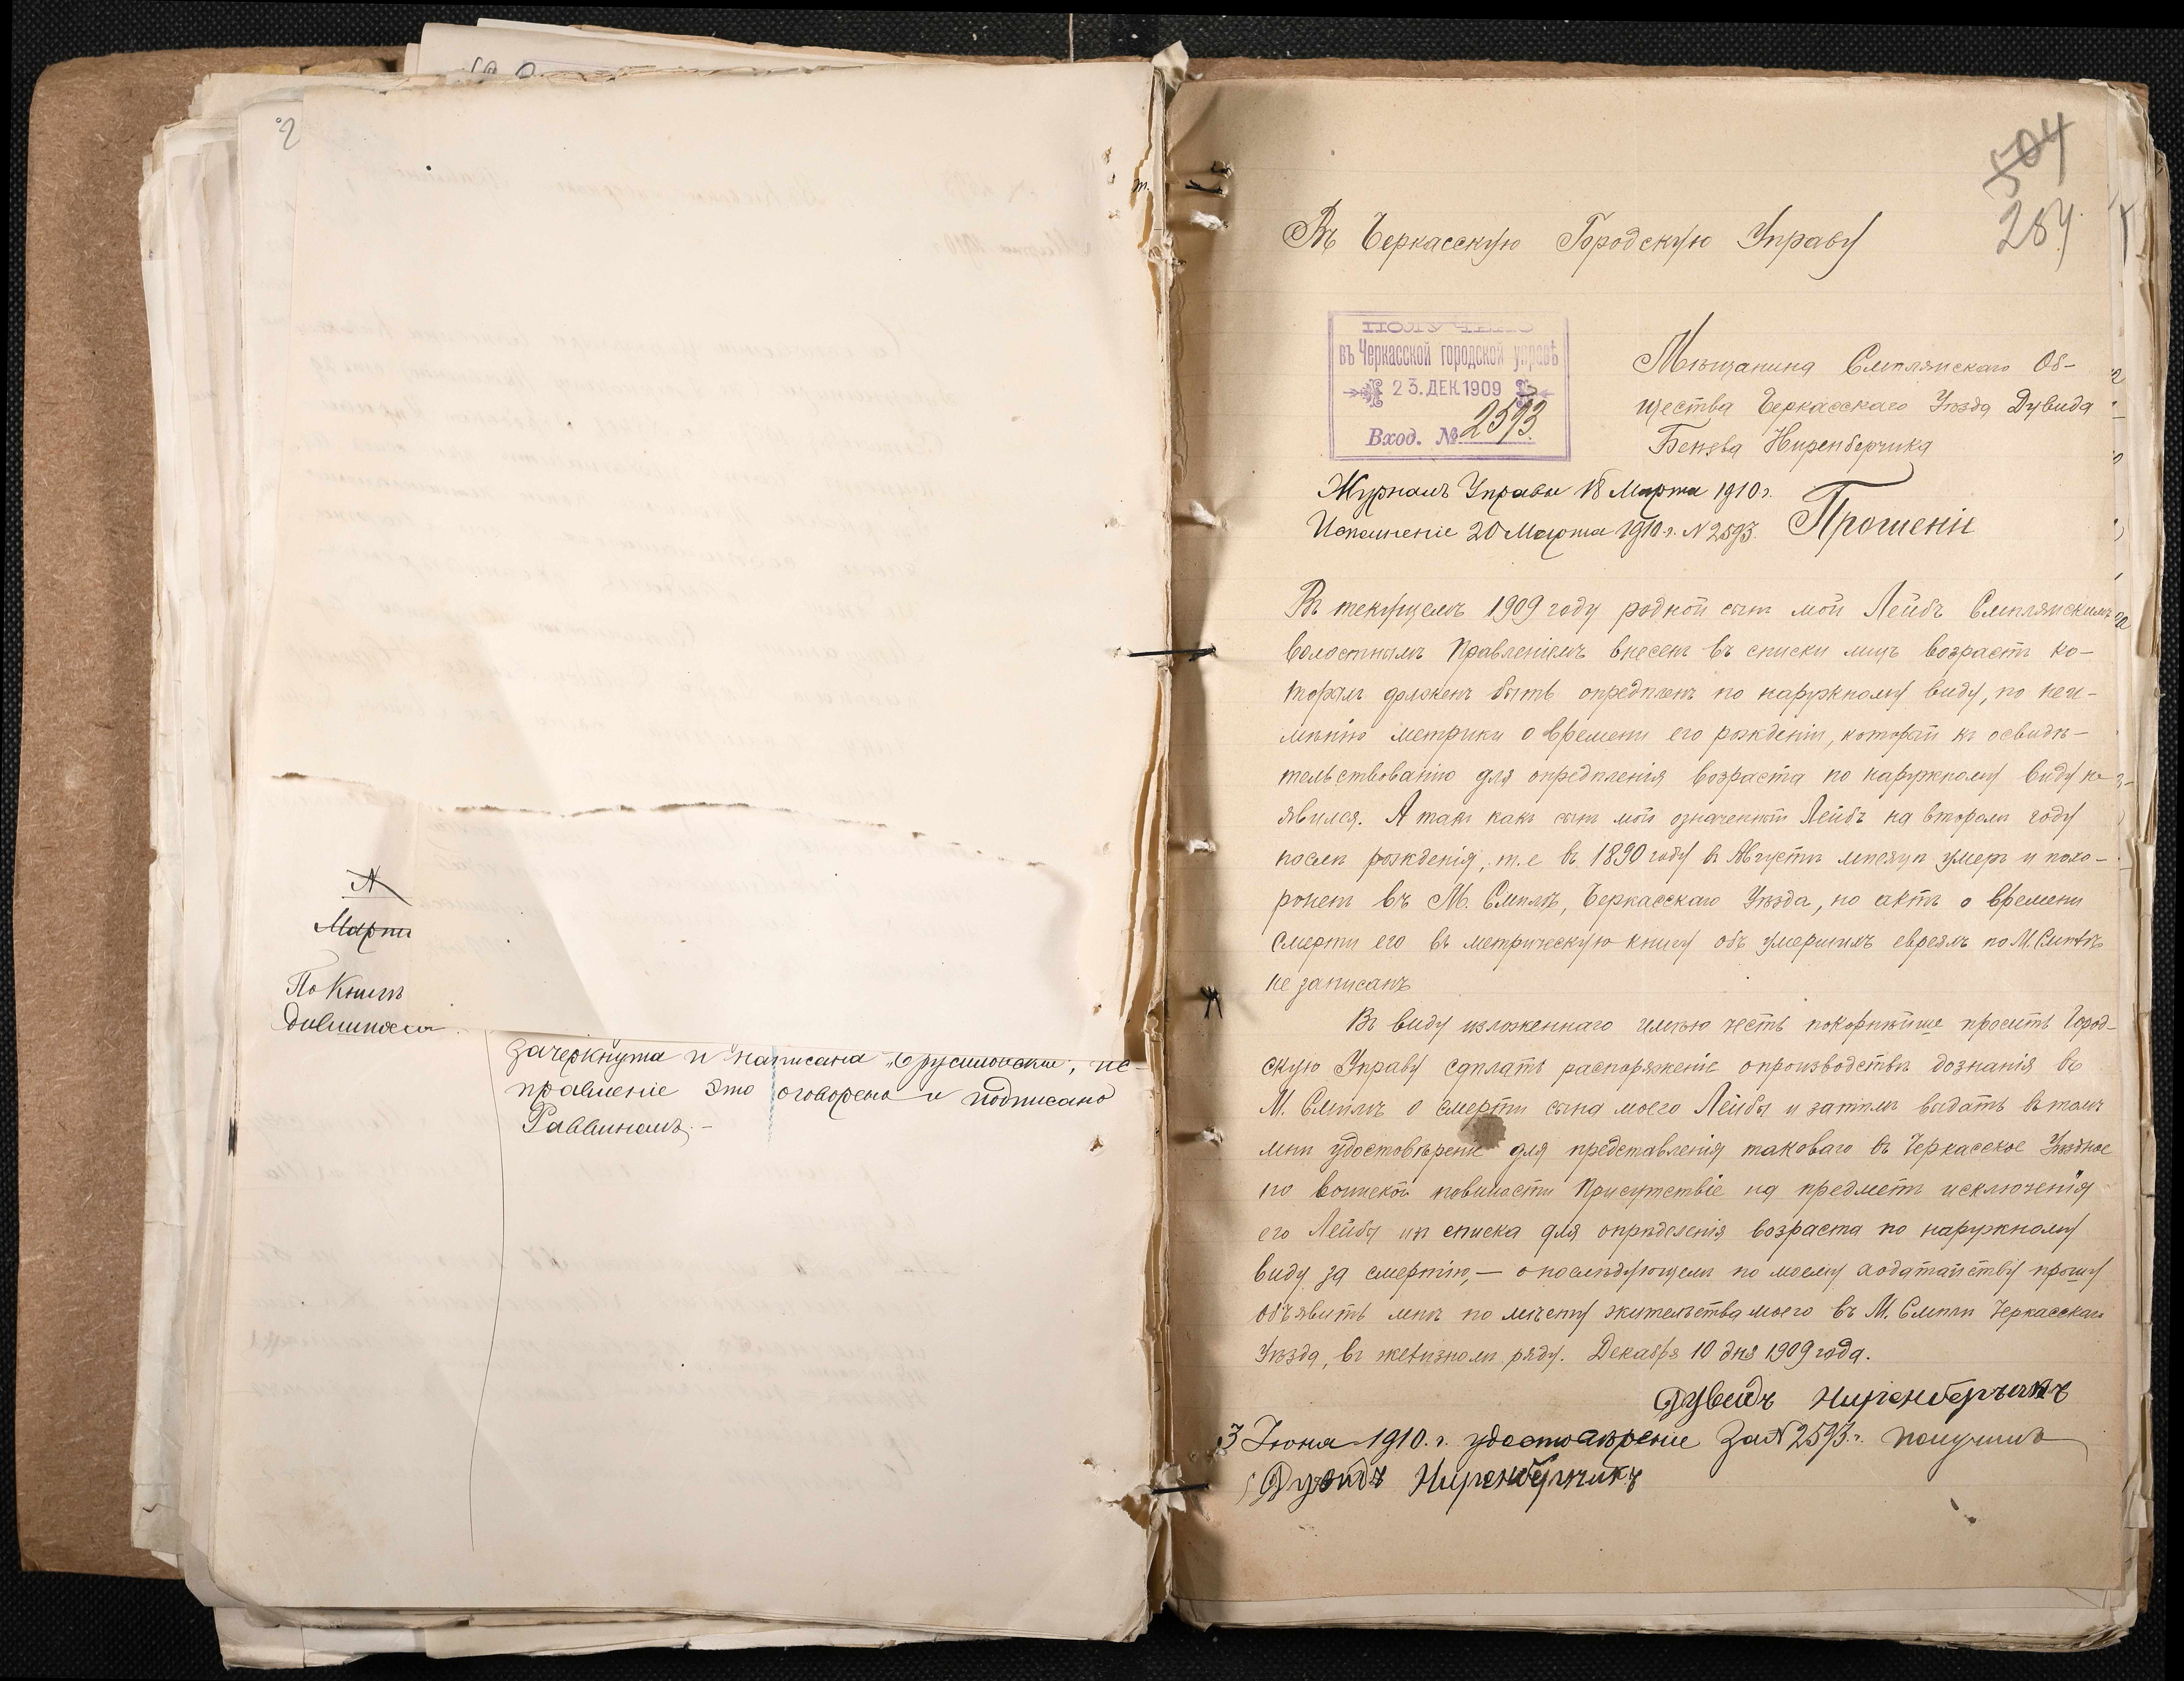 №
Марта
По Книгѣ
зачеркнута и написана „Брусиловские“, ис-
правленіе это оговорено и подписано
Раввиномъ.-
504
284
Въ Черкасскую Городскую Управу
ПОЛУЧЕНО
въ Черкасской городской управѣ
23. ДЕК. 1909
Вход. № 2593.
Мѣщанина Смѣлянскаго Об-
щества Черкасскаго Уѣзда Дувида
Бенява Ниренберчика
Журналъ Управы 18 Марта 1910 г.
Исполненіе 20 Марта 1910 г. N 2593.
Прошеніе
Въ текущемъ 1909 году родной сынъ мой Лейбъ Смѣлянскимъ
Волостнымъ Правленіемъ внесенъ въ списки лицъ возрастъ ко-
торыхъ долженъ быть опредѣленъ по наружному виду, по неи-
мѣнію метрики о времени его рожденія, который къ освидѣ-
тельствованію для опредѣленія возраста по наружному виду не
явился. А такъ какъ сынъ мой означенный Лейбъ на второмъ году
послѣ рожденія, т.е въ 1890 году въ Августѣ мѣсяцѣ умеръ и похо-
роненъ въ М. Смѣлѣ, Черкасскаго Уѣзда, но актъ о времени
смерти его въ метрическую книгу объ умершихъ евреяхъ по М. Смѣлѣ
не записанъ
Въ виду изложеннаго имѣю честь покорнѣйше просить Город-
скую Управу сдѣлать распоряженіе опроизводствѣ дознанія въ
М. Смѣлѣ о смерти сына моего Лейбы и затѣмъ выдать въ томъ
мнѣ удостовѣреніе для представленія таковаго въ Черкасское Уѣздное
по воинской повиности Присутствіе на предметъ исключенія
его Лейбы изъ списка для опрѣделенія возраста по наружному
виду за смертію, — о послѣдующемъ по моему ходатайству прошу
объявить мнѣ по мѣсту жительства моего въ М. Смѣлѣ Черкасскаго
Уѣзда, въ желѣзномъ ряду. Декабря 10 дня 1909 года.
Дувидъ Ниренберчикъ
3 Іюня 1910. г. удостовѣреніе За N 2593. г. получилъ
Дувидъ Ниренберчикъ